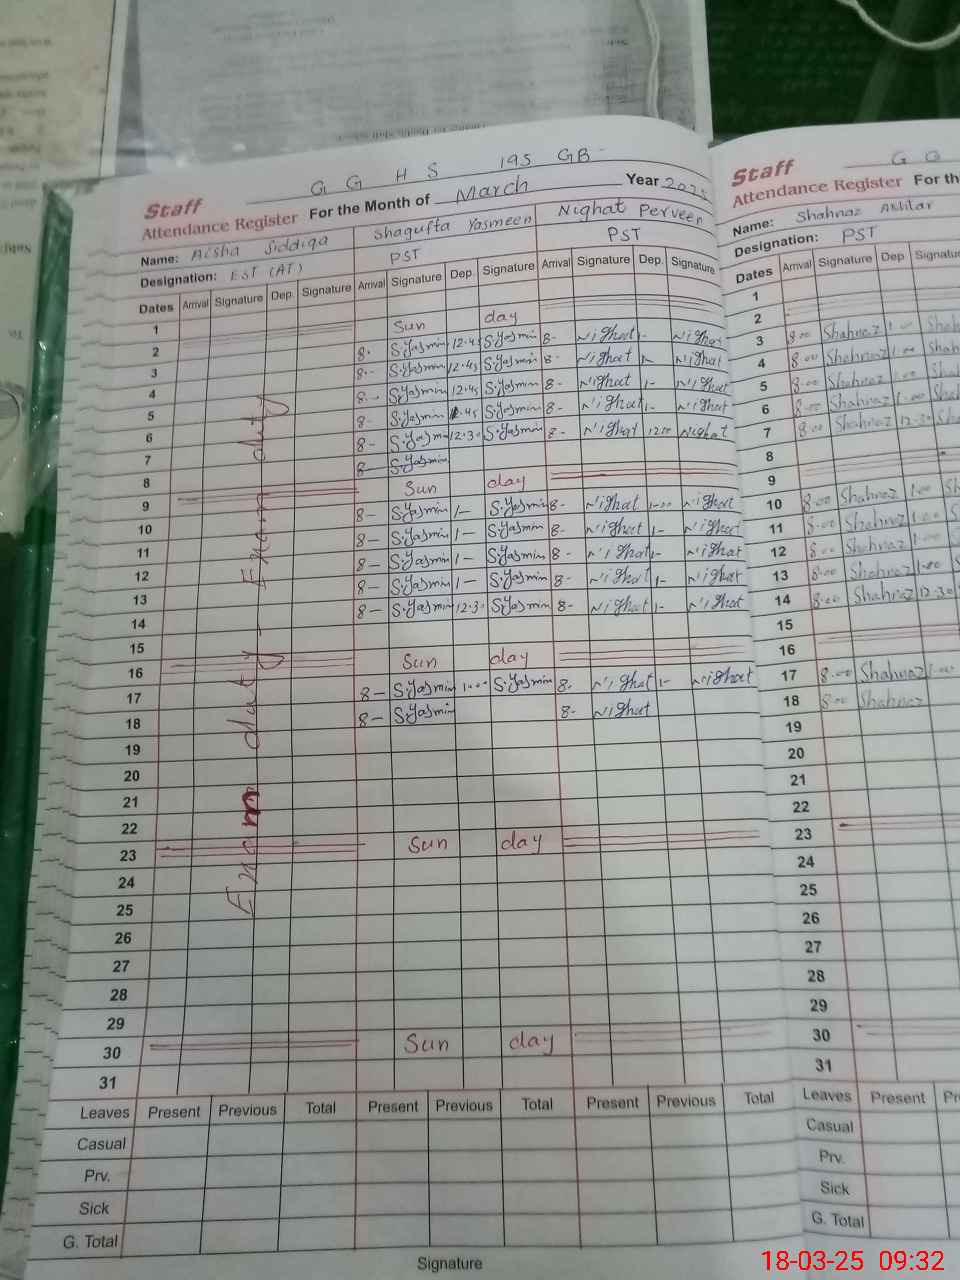 G G H S 195 GB
Staff
Attendance Register For the Month of March Year 2025
Name: Aisha Siddiqa Shagufta Yasmeen Nighat Perveen
Designation: EST (AT) PST PST
Dates Arrival Signature Dep. Signature Arrival Signature Dep. Signature Arrival Signature Dep. Signature
1
2 Sun day
3 8- S.Yasmin 12.45 S.Yasmin 8- Nighat 1- Nighat
4 8- S.Yasmin 12.45 S.Yasmin 8- Nighat 1- Nighat
5 8- S.Yasmin 12.45 S.Yasmin 8- Nighat 1- Nighat
6 8- S.Yasmin 12.45 S.Yasmin 8- Nighat 1- Nighat
7 8- S.Yasmin 12.30 S.Yasmin 8- Nighat 12.00 Nighat
8 8- S.Yasmin
9 Sun day
10 8- S.Yasmin 1- S.Yasmin 8- Nighat 1-00 Nighat
11 8- S.Yasmin 1- S.Yasmin 8- Nighat 1- Nighat
12 8- S.Yasmin 1- S.Yasmin 8- Nighat 1- Nighat
13 8- S.Yasmin 1- S.Yasmin 8- Nighat 1- Nighat
14 8- S.Yasmin 12.30 S.Yasmin 8- Nighat 1- Nighat
15
16 Sun day
17 8- S.Yasmin 1-00 S.Yasmin 8- Nighat 1- Nighat
18 8- S.Yasmin 8- Nighat
19
20
21
22
23 Sun day
24
25
26
27
28
29
30 Sun day
31
Exam duty Exam duty
Leaves Present Previous Total Present Previous Total Present Previous Total
Casual
Prv.
Sick
G. Total
Signature
G G
Staff
Attendance Register For th
Name: Shahnaz Akhtar
Designation: PST
Dates Arrival Signature Dep
1
2
3 8.00 Shahnaz 1.00
4 8.00 Shahnaz 1.00
5 8.00 Shahnaz 1.00
6 8.00 Shahnaz 1.00
7 8.00 Shahnaz 12.30
8
9
10 8.00 Shahnaz 1.00
11 8.00 Shahnaz 1.00
12 8.00 Shahnaz 1.00
13 8.00 Shahnaz 1.00
14 8.00 Shahnaz 12.30
15
16
17 8.00 Shahnaz 1.00
18 8.00 Shahnaz
19
20
21
22
23
24
25
26
27
28
29
30
31
Leaves Present
Casual
Prv.
Sick
G. Total
18-03-25 09:32